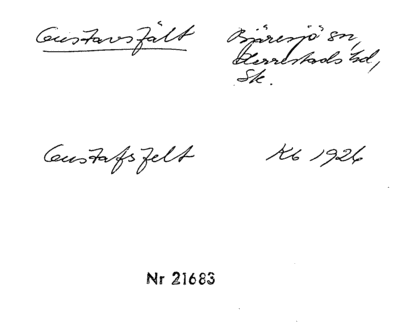 Gustavsfält
Bjäresjö sn,
Herrestads hd,
Sk.
Gustafsfelt
Kb 1926
Nr 21683